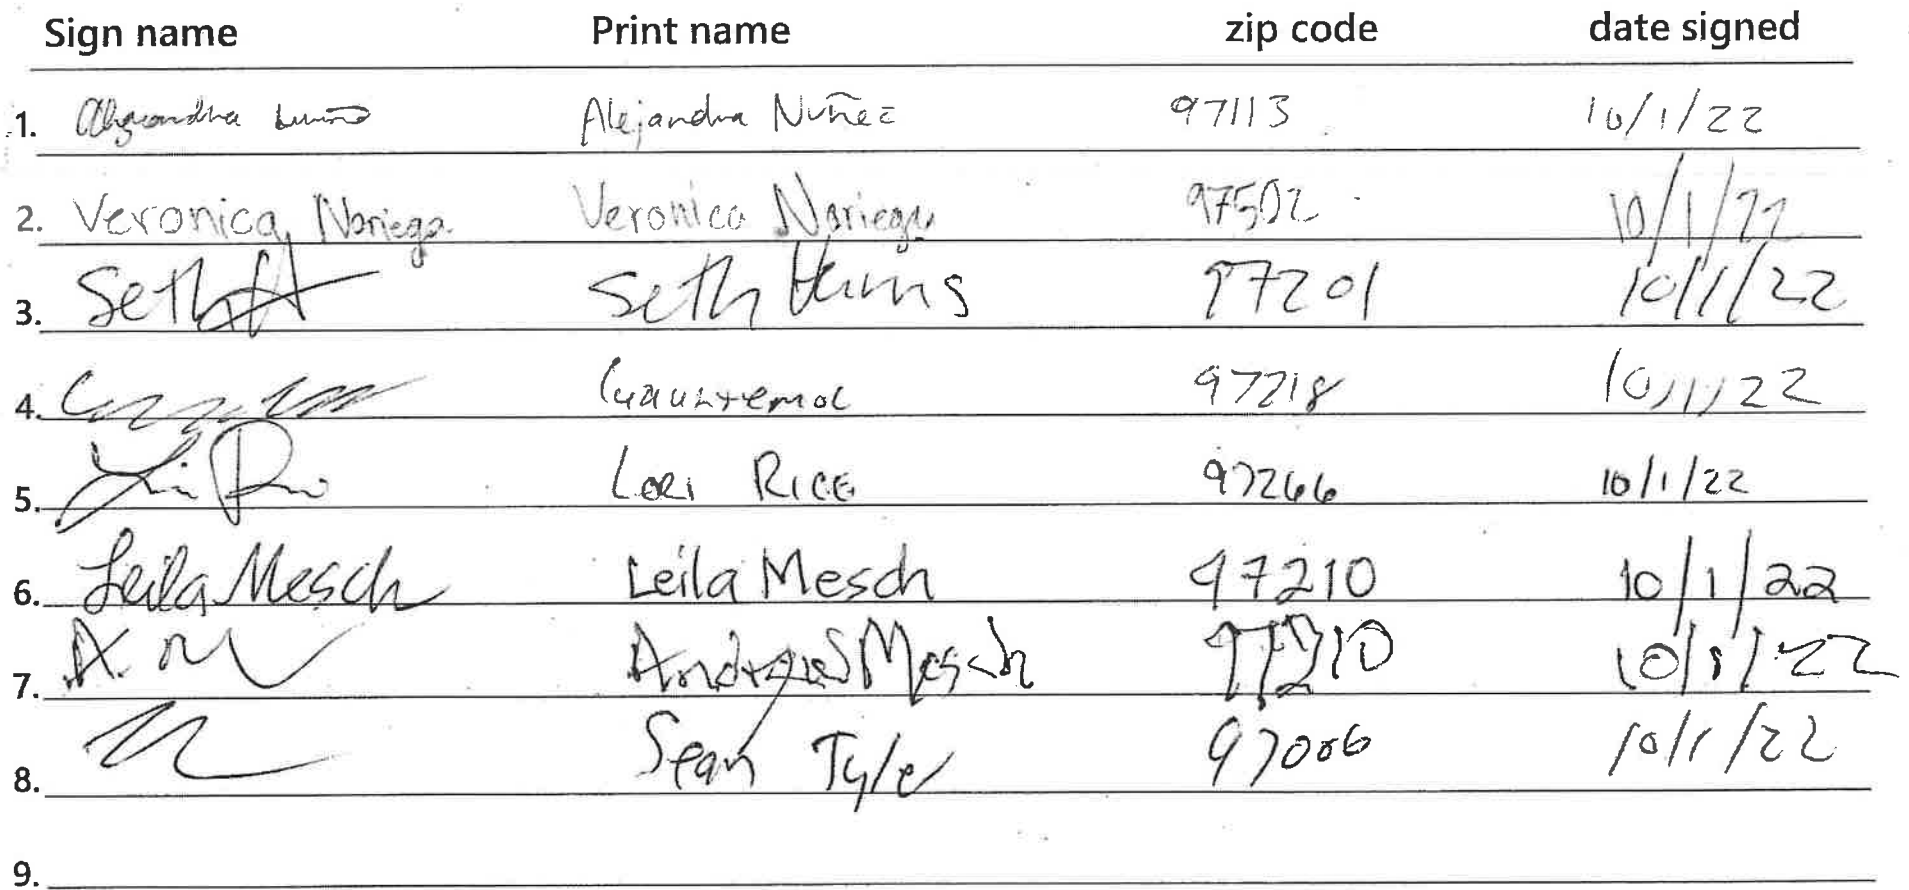 Sign name Print name zip code date signed
1. Alejandra Nuñez 97113 10/1/22
2. Veronica Noriega Veronica Noriega 97502 10/1/22
3. Seth H Seth 97201 10/1/22
4. Cuauhtemoc 97218 10/1/22
5. Lori Rice 97266 10/1/22
6. Leila Mesch Leila Mesch 97210 10/1/22
7. A. M Andrew Mesch 97210 10/1/22
8. Sean Tyler 97006 10/1/22
9.